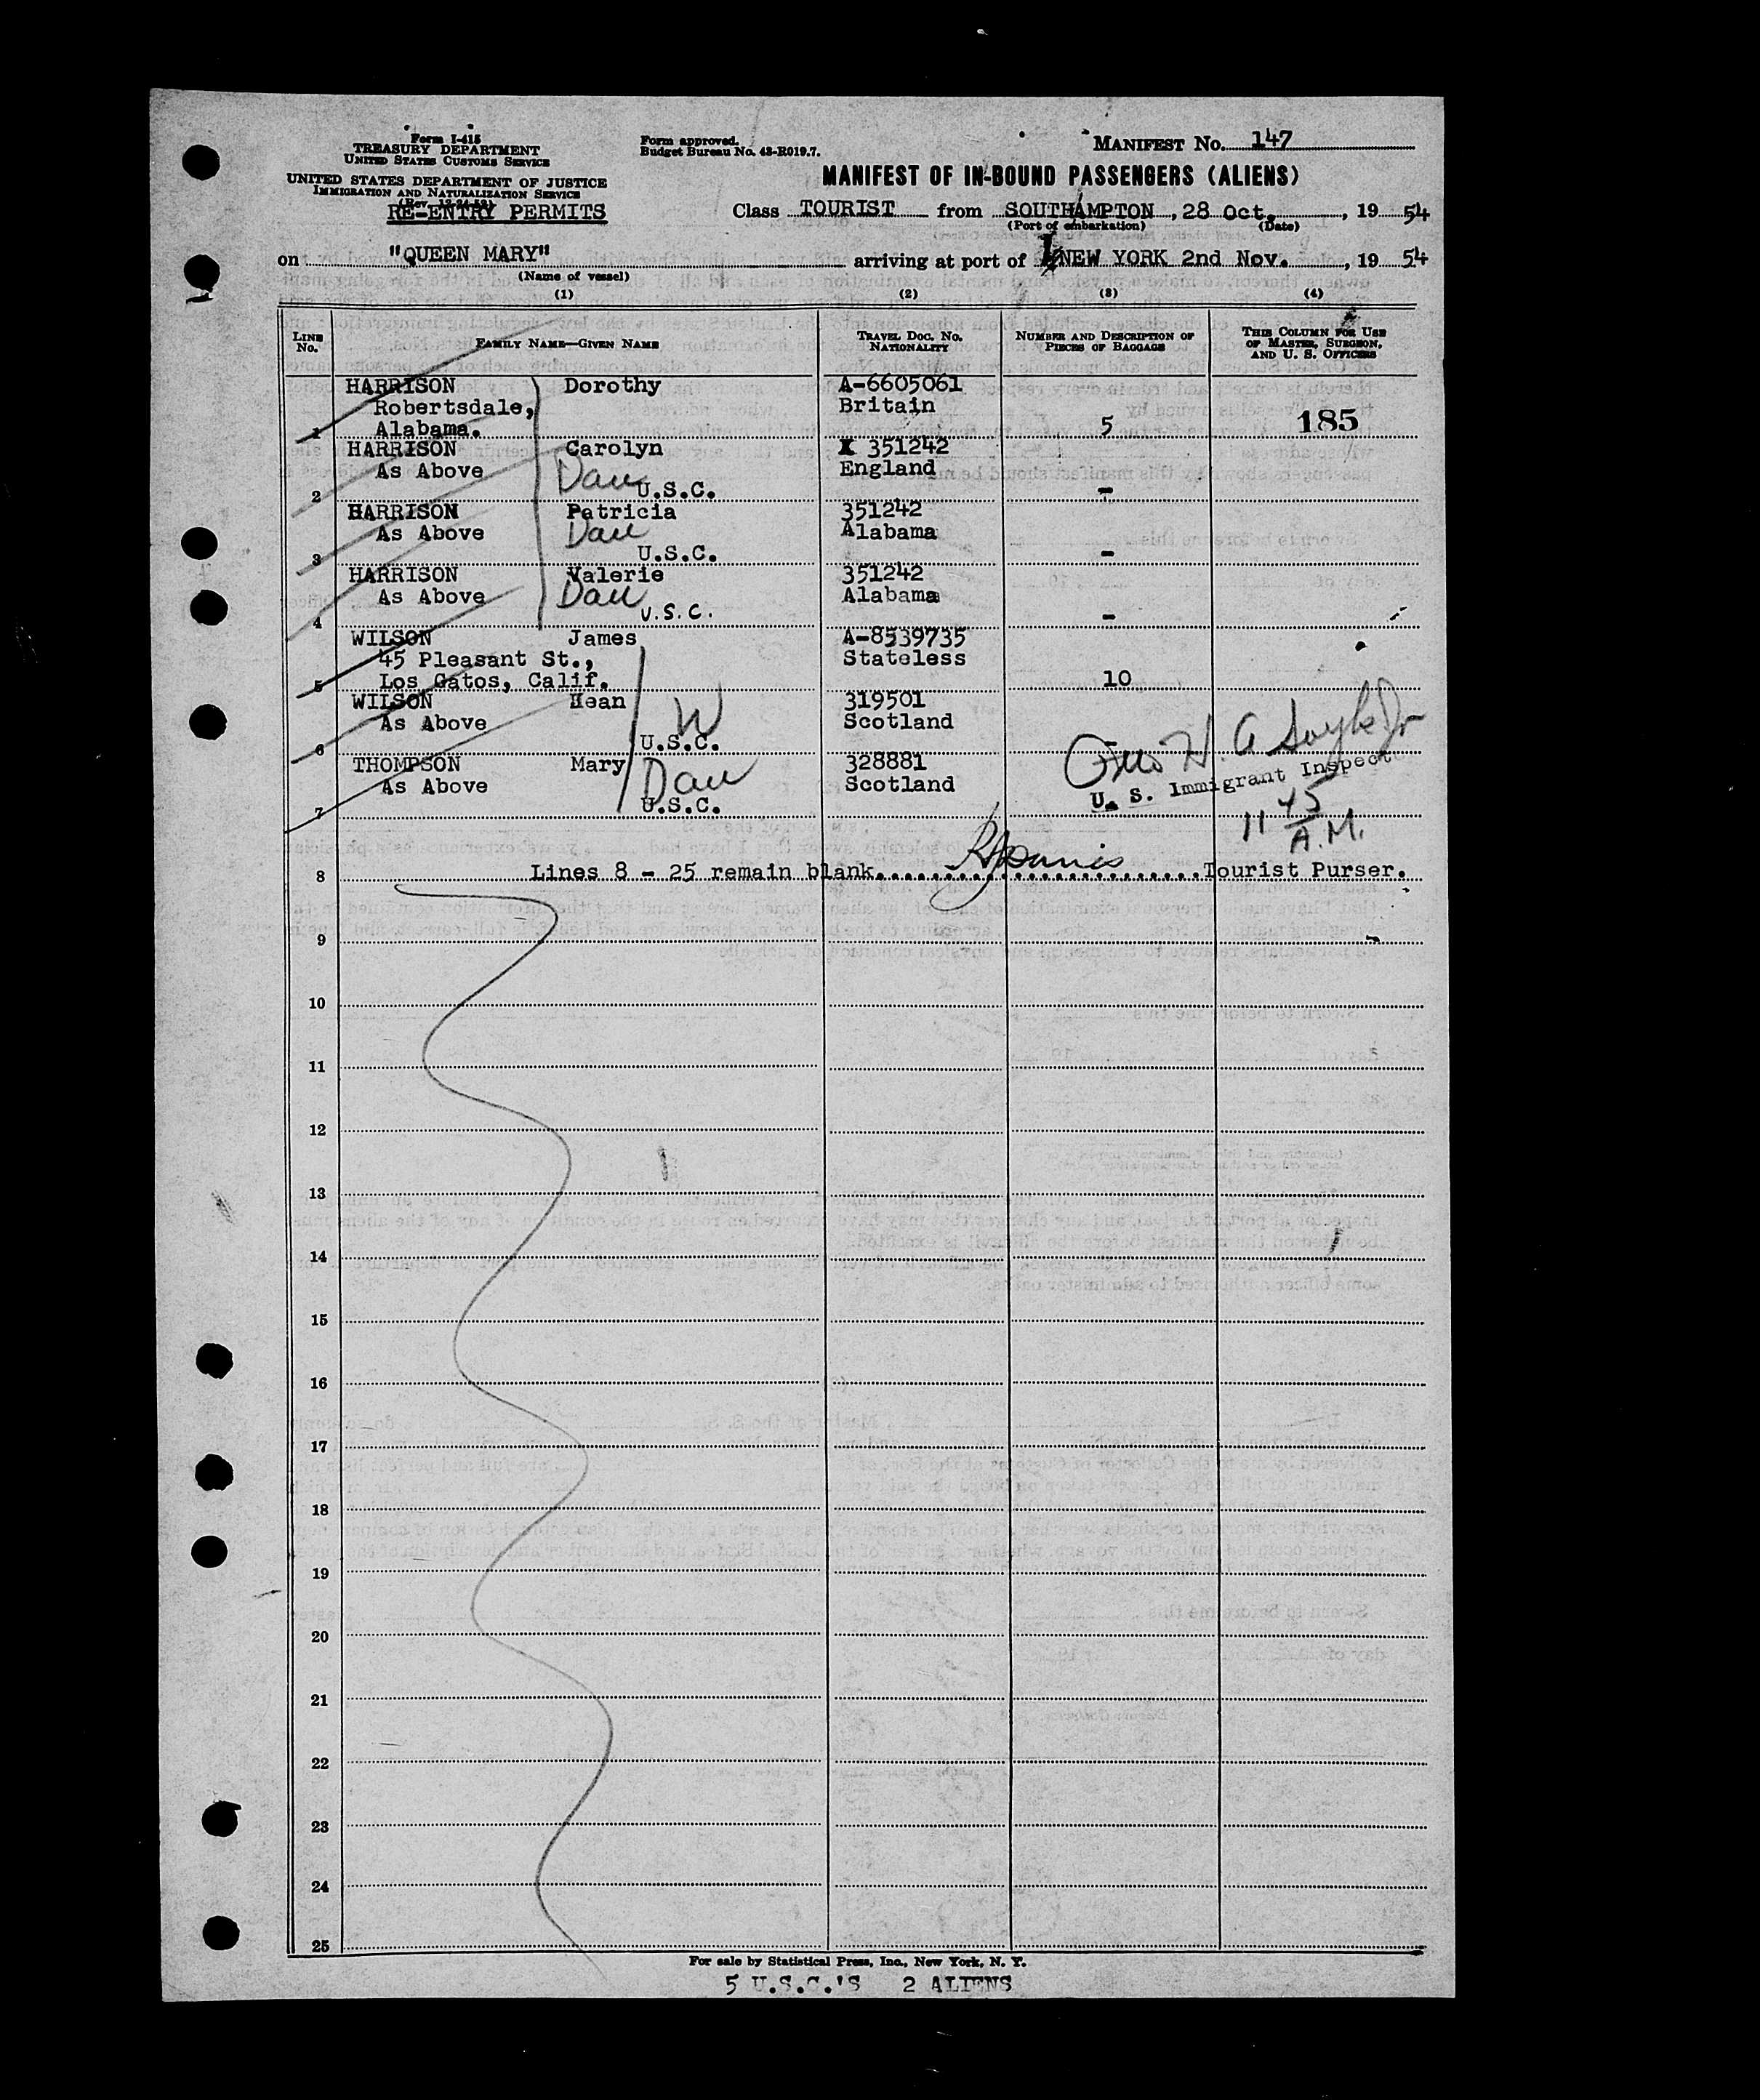 Form I-415
TREASURY DEPARTMENT
UNITED STATES CUSTOMS SERVICE
UNITED STATES DEPARTMENT OF JUSTICE
IMMIGRATION AND NATURALIZATION SERVICE
(Rev. 12-24-52)
RE-ENTRY PERMITS
Form approved.
Budget Bureau No. 43-R019.7.
MANIFEST No. 147
MANIFEST OF IN-BOUND PASSENGERS (ALIENS)
Class TOURIST from SOUTHAMPTON, 28 Oct., 19 54
(Port of embarkation) (Date)
on "QUEEN MARY" arriving at port of NEW YORK 2nd Nov., 19 54
(Name of vessel)
(1) (2) (3) (4)
LINE No. FAMILY NAME—GIVEN NAME TRAVEL DOC. NO. NATIONALITY NUMBER AND DESCRIPTION OF PIECES OF BAGGAGE THIS COLUMN FOR USE OF MASTER, SURGEON, AND U. S. OFFICERS
HARRISON Dorothy A-6605061
Robertsdale, Britain
1 Alabama. 5 185
HARRISON Carolyn X 351242
As Above Dau England
2 U.S.C. -
HARRISON Patricia 351242
As Above Dau Alabama
3 U.S.C. -
HARRISON Valerie 351242
As Above Dau Alabama
4 U.S.C. -
WILSON James A-8539735
45 Pleasant St., Stateless
5 Los Gatos, Calif. 10
WILSON Hean 319501
As Above W Scotland
6 U.S.C. -
THOMPSON Mary 328881
As Above Dau Scotland
7 U.S.C.
U. S. Immigrant Inspector
11 45 A.M.
8 Lines 8 - 25 remain blank. Tourist Purser.
9
10
11
12
13
14
15
16
17
18
19
20
21
22
23
24
25
For sale by Statistical Press, Inc., New York, N. Y.
5 U.S.C.'S 2 ALIENS